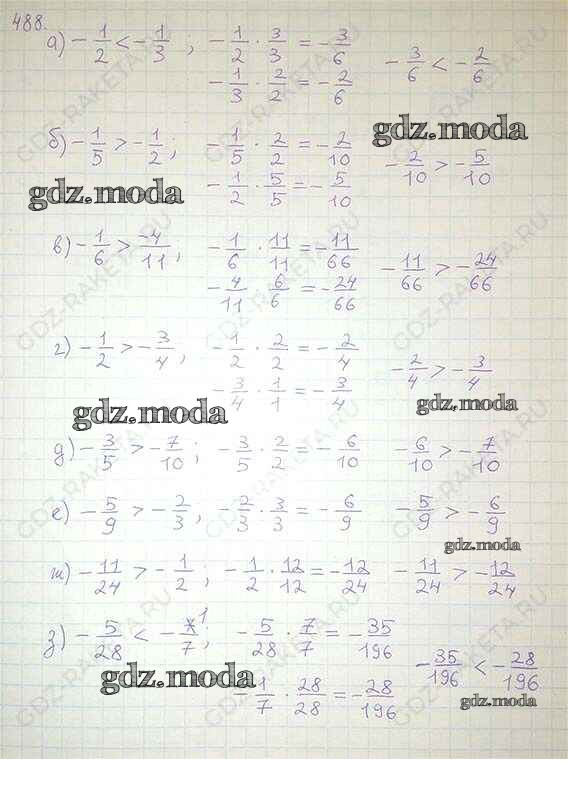 488.
а) -1/2 < -1/3 ; -1/2 · 3/3 = -3/6
-1/3 · 2/2 = -2/6 -3/6 < -2/6
gdz.moda
б) -1/5 > -1/2 ; -1/5 · 2/2 = -2/10
-1/2 · 5/5 = -5/10 -2/10 > -5/10
gdz.moda
в) -1/6 > -4/11 ; -1/6 · 11/11 = -11/66
-4/11 6/6 = -24/66 -11/66 > -24/66
г) -1/2 > -3/4 ; -1/2 · 2/2 = -2/4
-3/4 · 1/1 = -3/4 -2/4 > -3/4
gdz.moda
gdz.moda
д) -3/5 > -7/10 ; -3/5 · 2/2 = -6/10 -6/10 > -7/10
е) -5/9 > -2/3 ; -2/3 · 3/3 = -6/9 -5/9 > -6/9
gdz.moda
ж) -11/24 > -1/2 ; -1/2 · 12/12 = -12/24 -11/24 > -12/24
з) -5/28 < -1/7 ; -5/28 · 7/7 = -35/196
-1/7 · 28/28 = -28/196 -35/196 < -28/196
gdz.moda
gdz.moda
GDZ-RAKETA.RU